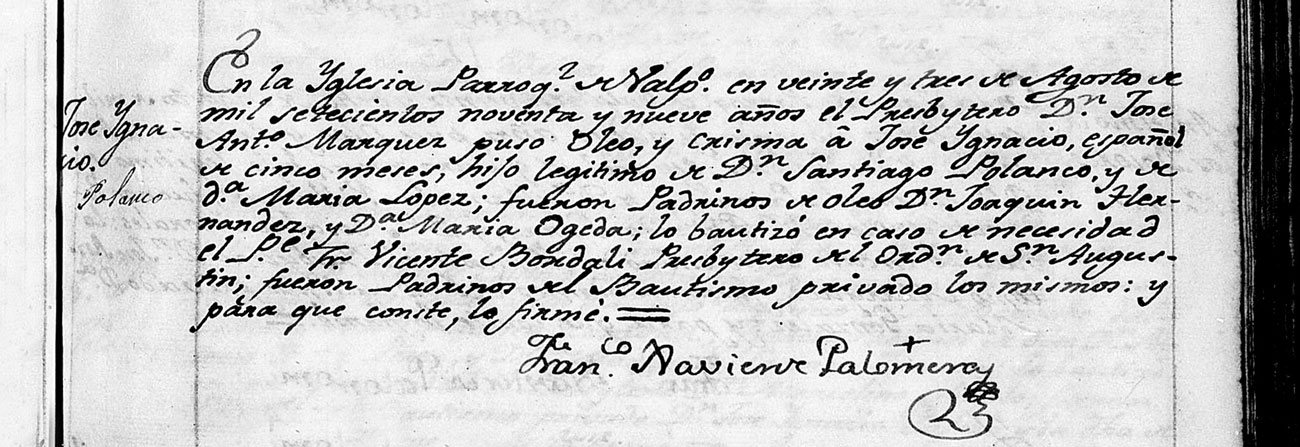 Jose Ygna-
cio.
Polanco
En la Yglesia Parroq.l de Valp.o en veinte y tres de Agosto de
mil setecientos noventa y nueve años el Presbytero D.n Jose
Ant.o Marquez puso Oleo, y crisma â José Ygnacio, español
de cinco meses, hijo legitimo de D.n Santiago Polanco, y de
d.a Maria Lopez; fueron Padrinos de oleo D.n Joaquin Her-
nandez, y D.a Maria Ogeda; lo bautizó en caso de necesidad
el P.e Fr. Vicente Bondali Presbytero del Ord.n de S.n Augus-
tin; fueron Padrinos del Bautismo privado los mismos: y
para que conste, lo firmé.
Fran.co Xavier de Palomera